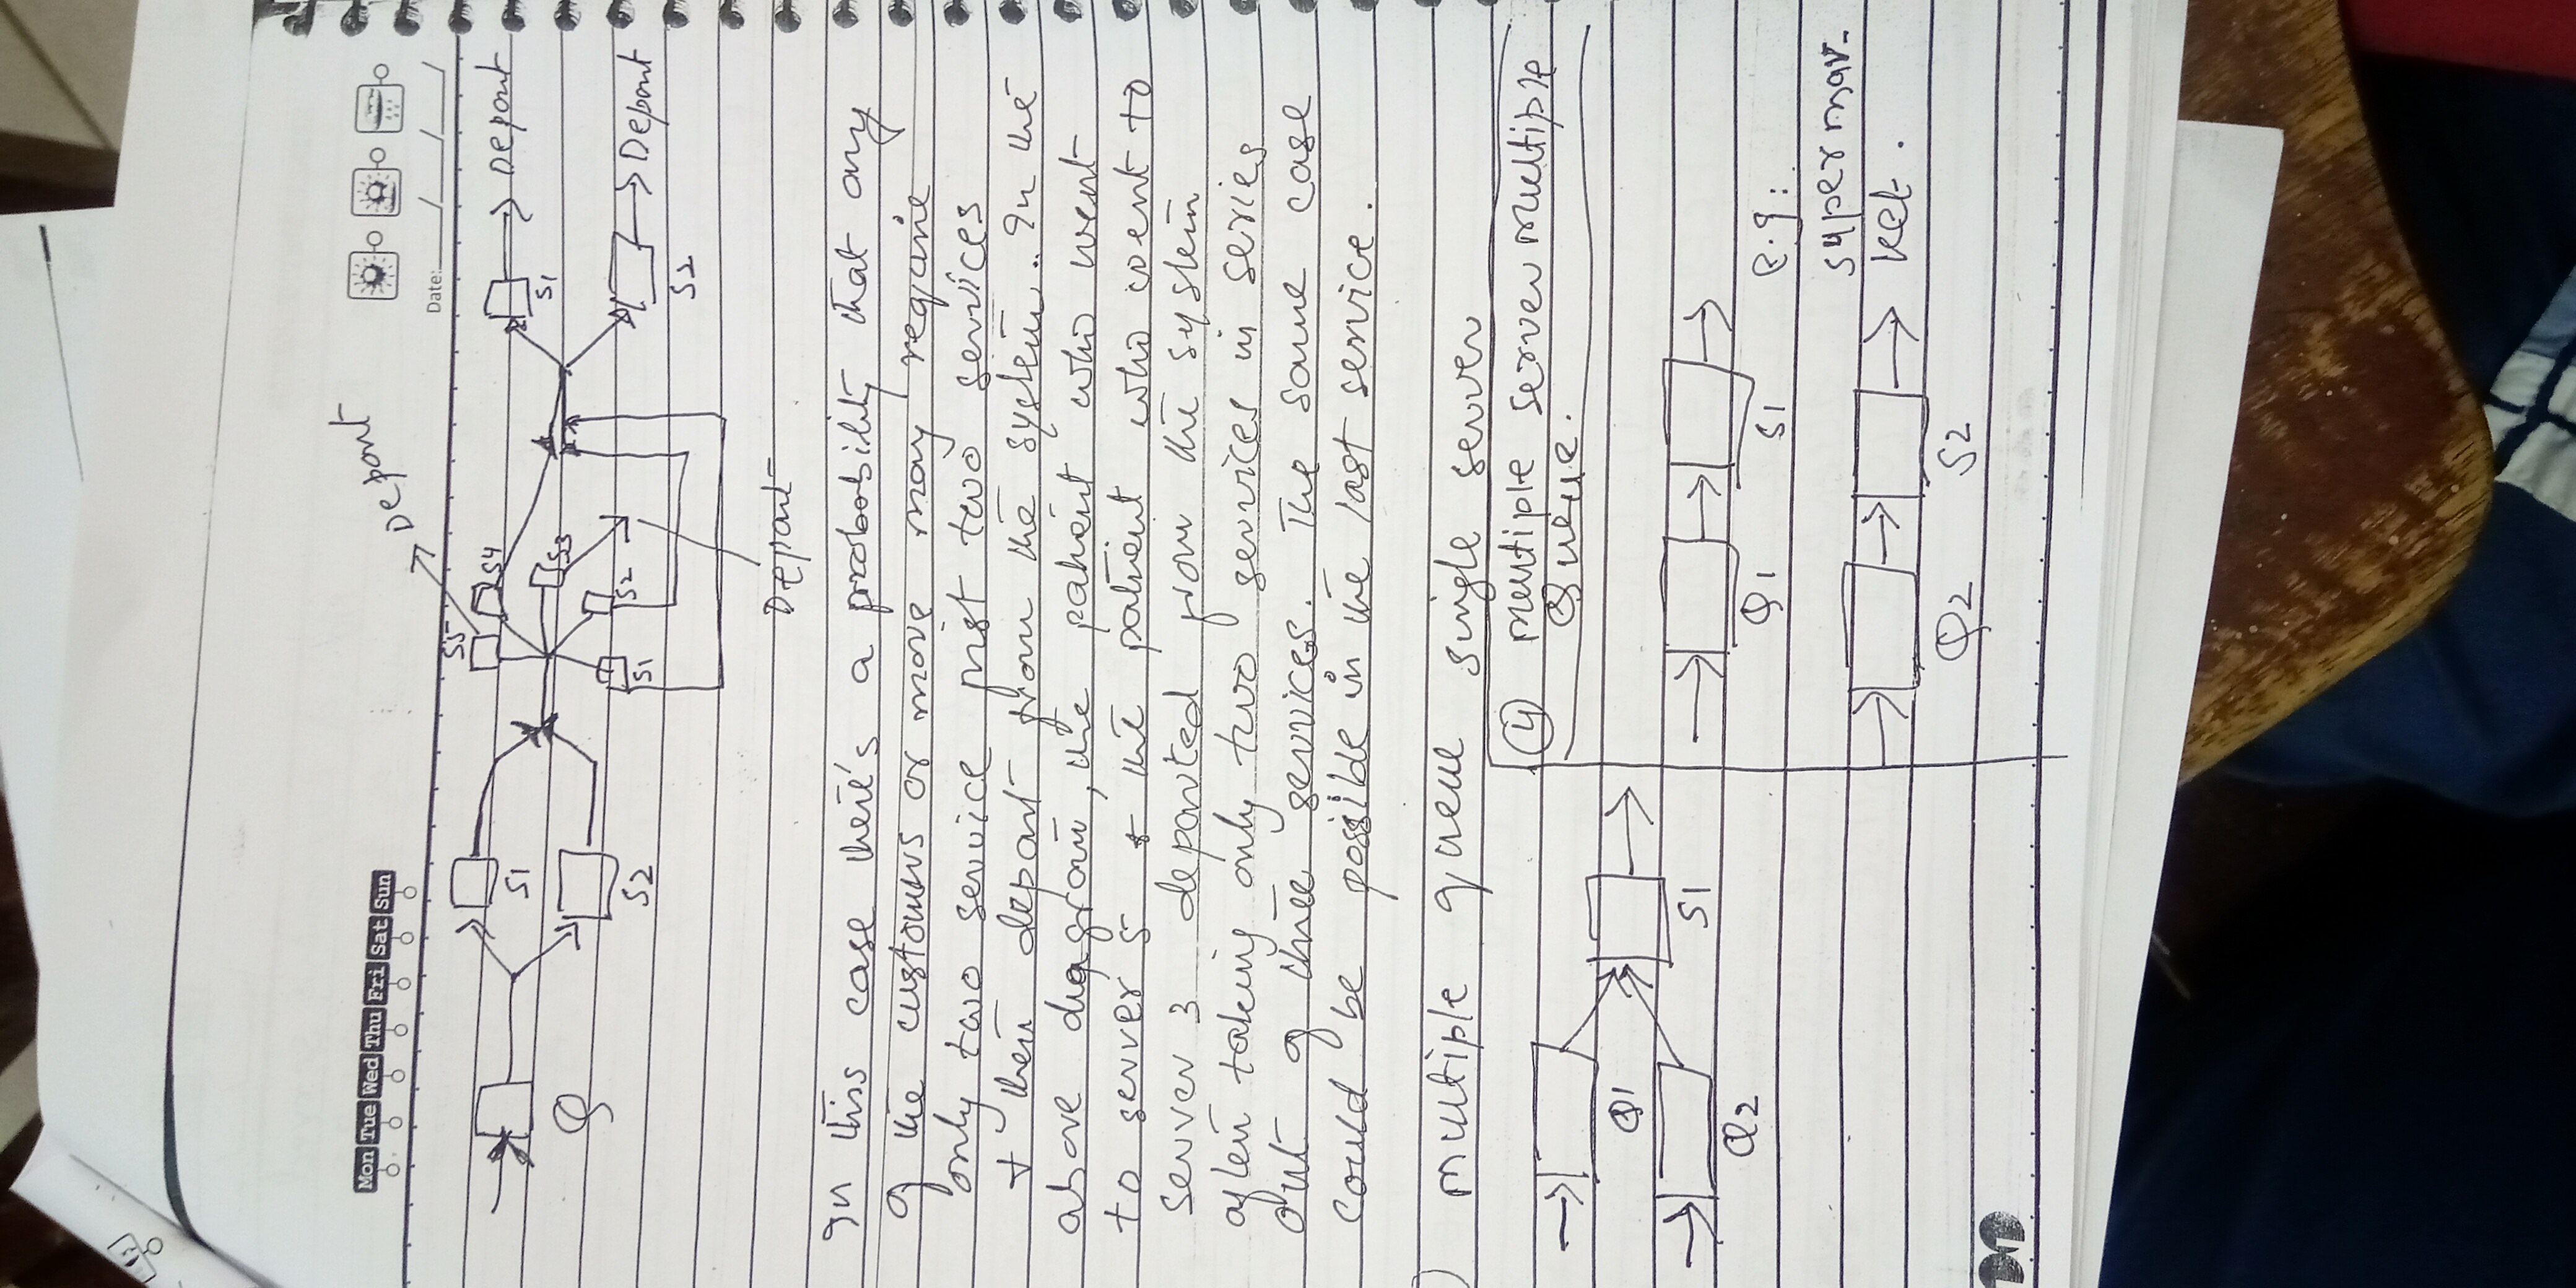 Mon Tue Wed Thu Fri Sat Sun
Date: / / /
Depart
S5
S4
S1
S3
Q
S2
S1
S2
S1
Depart
S2
Depart
Depart
In this case there's a probability that any
of the customers or more may require
only two service first two services
+ then depart from the system. In the
above diagram, the patient who went
to server 5 & the patient who went to
server 3 departed from the system
after taking only two services in series
out of three services. The same case
could be possible in the last service.
) multiple queue single server
Q1
Q2
S1
4 multiple server multiple
Queue.
Q1
S1
e.g:
supermar-
ket.
Q2
S2